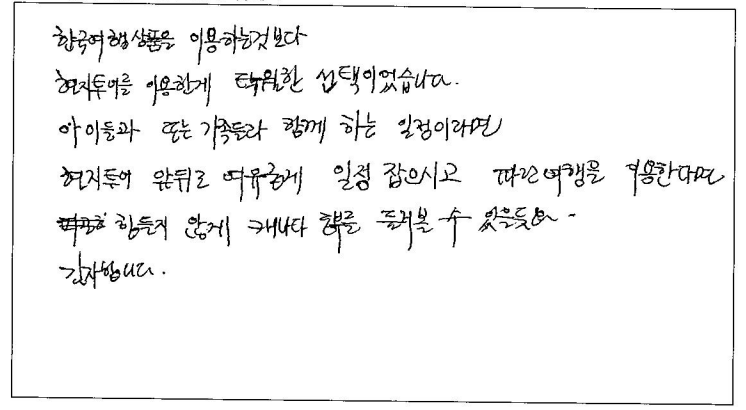 한국여행상품을 이용하는것보다
현지투어를 이용한게 탁월한 선택이었습니다.
아이들과 또는 가족들과 함께 하는 일정이라면
현지투어 앞뒤로 여유롭게 일정 잡으시고 여행을 이용한다면
힘들지 않게 캐나다 를 둘러볼 수 있을듯요~
감사합니다.